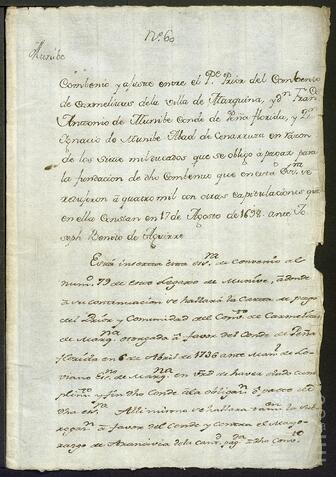 Nº. 60
Munibe
Combenio y ajuste entre el Pe. Prior del Combento
de Carmelitas de la villa de Marquina, y Dn. Franco.
Antonio de Munibe Conde de Peña florida, y Dn.
Ignacio de Munibe Abad de Cenarruza en razon
de los siete mil ducados que se obligó à pagar para
la fundacion de dho Combento que en esta Esra. se
redugeron à quatro mil con otras capitulaciones que
en ella constan en 17 de Agosto de 1698. ante Jo
seph Benito de Aguirre
Està inserta esta esra. de convenio al
numo. 79 de este Legajo de Munive, adonde
à su continuacion se hallarà la Carta de pago
del Prior y Comunidad del Comto. de Carmelitas
de Marqna. otorgada à favor del Conde de Peña
florida en 6 de Abril de 1736 ante Manl. de Lo
viano Esno. de Marqna. en vrd. de haver dado cum
plimto. y fin dho Conde à la obligaon. ò pacto de
dha esra. Alli mismo se hallarà tamn. la Sub
rogaon. à favor del Conde y contra el Mayo
razgo de Arancivia de la cantd. pagda. à dho Comto.